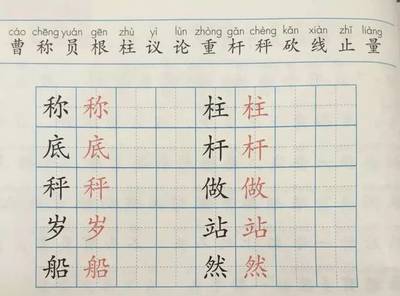 cáo chēng yuán gēn zhù yì lùn zhòng gǎn chèng kǎn xiàn zhǐ liàng
曹 称 员 根 柱 议 论 重 杆 秤 砍 线 止 量
称 称 柱 柱
底 底 杆 杆
秤 秤 做 做
岁 岁 站 站
船 船 然 然